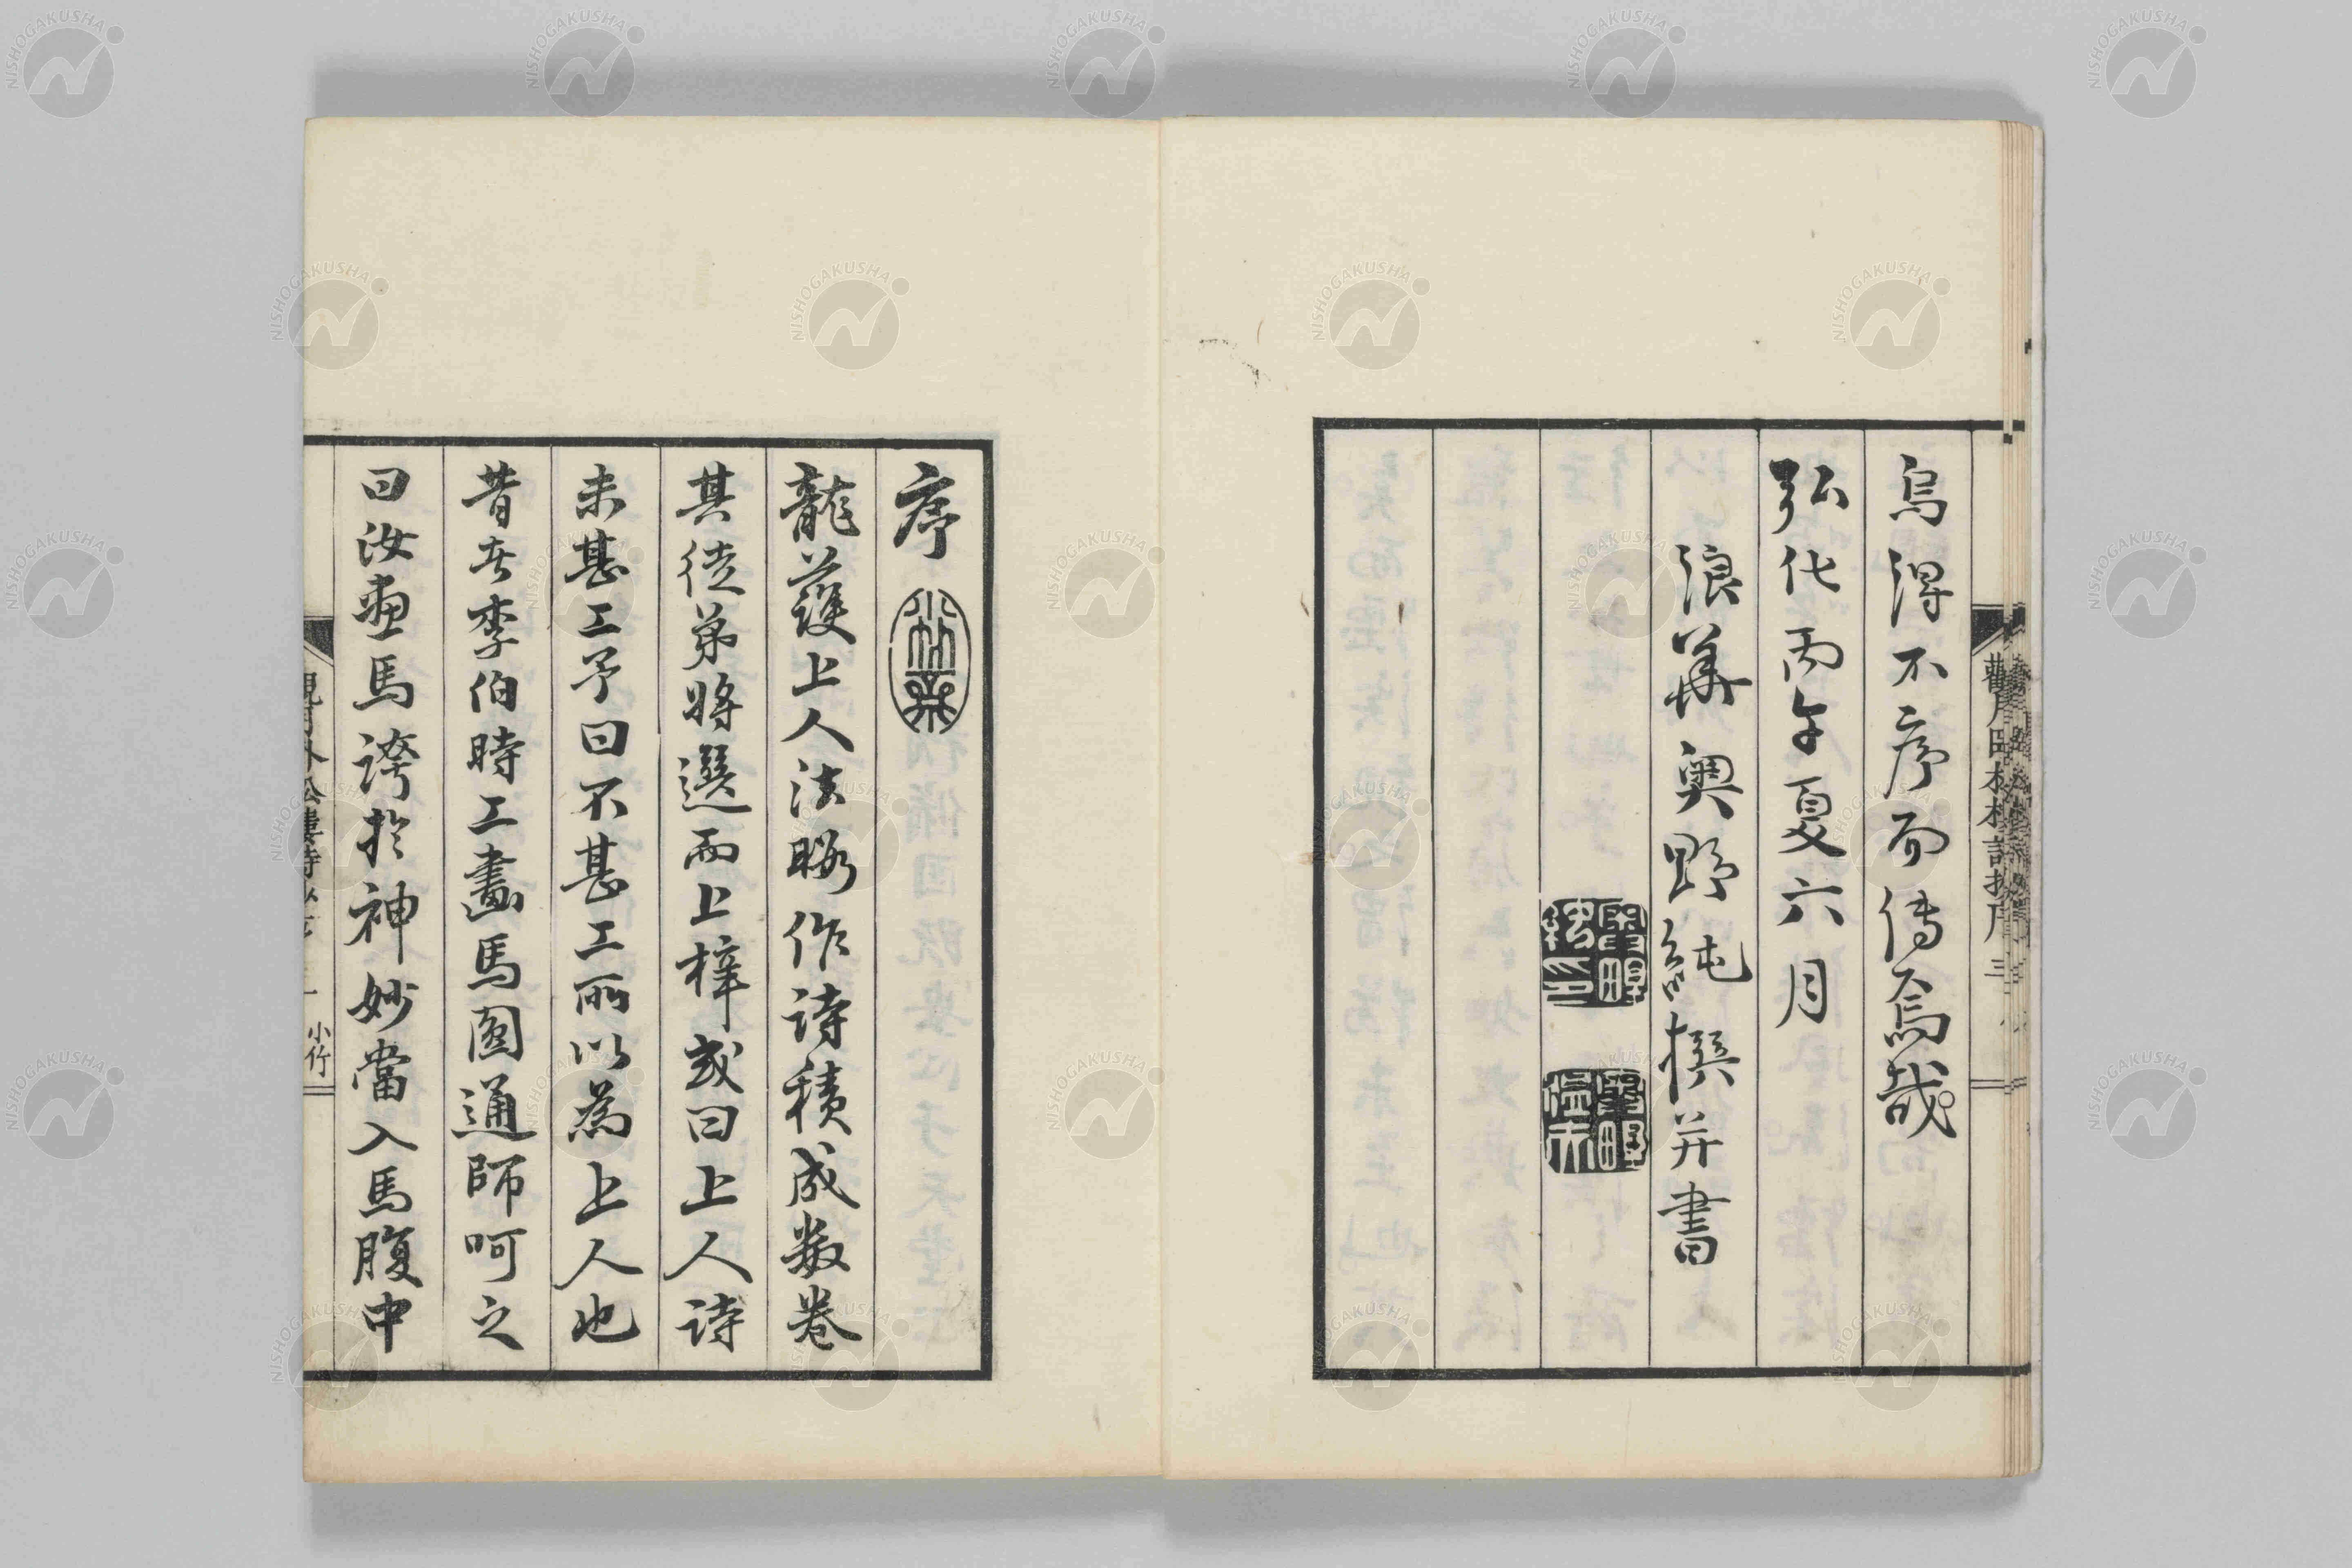 烏得不序而傳焉哉
弘化丙午夏六月
浪華奧野純撰并書
序
龍護上人法暇作詩積成數卷
其徒弟將選而上梓或曰上人詩
未甚工予曰不甚工所以為上人也
昔者李伯時工畫馬圓通師呵之
曰汝畫馬誇於神妙當入馬腹中
小竹
NISHOGAKUSHA